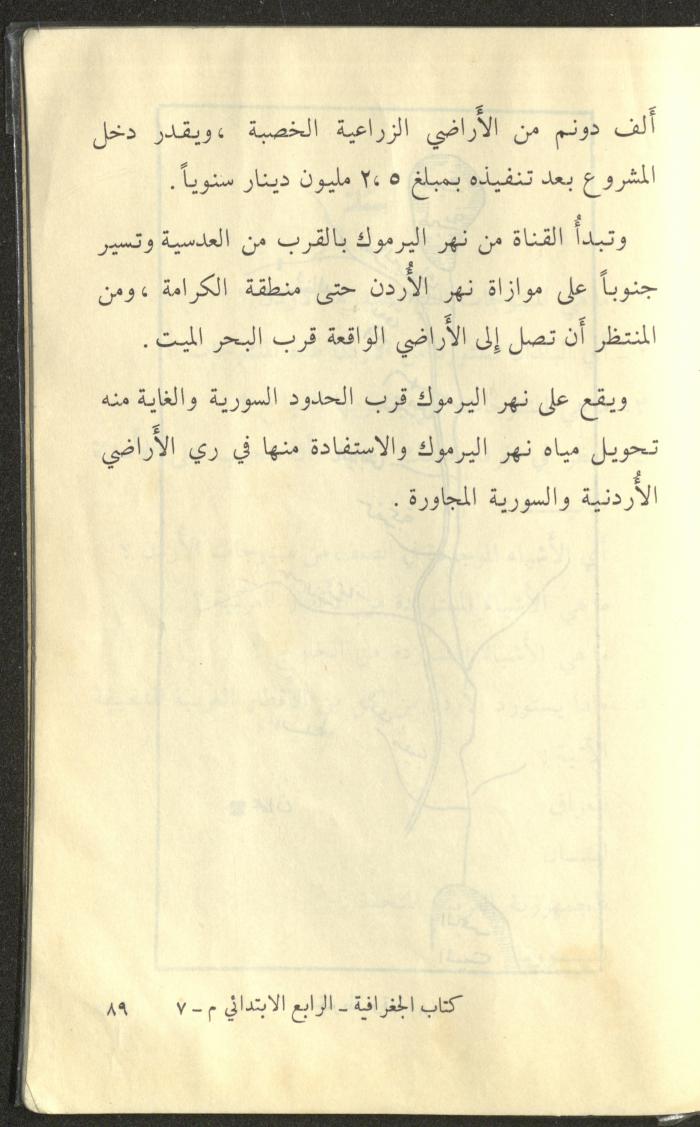 أَلف دونم من الأَراضي الزراعية الخصبة ، ويقدر دخل
المشروع بعد تنفيذه بمبلغ ٢،٥ مليون دينار سنوياً .
وتبدأُ القناة من نهر اليرموك بالقرب من العدسية وتسير
جنوباً على موازاة نهر الأُردن حتى منطقة الكرامة ، ومن
المنتظر أَن تصل إِلى الأَراضي الواقعة قرب البحر الميت .
ويقع على نهر اليرموك قرب الحدود السورية والغاية منه
تحويل مياه نهر اليرموك والاستفادة منها في ري الأَراضي
الأُردنية والسورية المجاورة .
كتاب الجغرافية ـ الرابع الابتدائي م ـ ٧ ٨٩